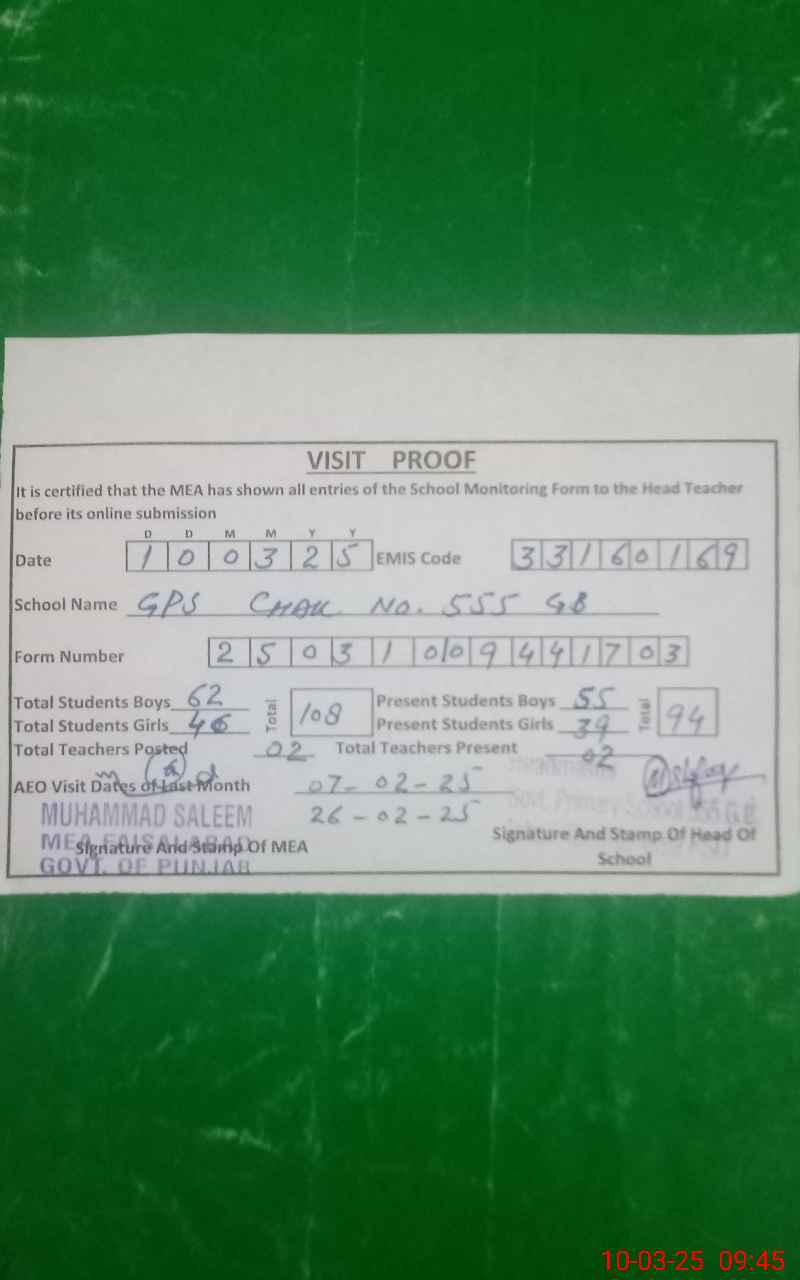 VISIT PROOF
It is certified that the MEA has shown all entries of the School Monitoring Form to the Head Teacher
before its online submission
D D M M Y Y
Date 1 0 0 3 2 5 EMIS Code 3 3 1 6 0 1 6 9
School Name GPS CHAK No. 555 GB
Form Number 2 5 0 3 1 0 0 9 4 4 1 7 0 3
Total Students Boys 62 Total 108 Present Students Boys 55 Total 94
Total Students Girls 46 Present Students Girls 39
Total Teachers Posted 02 Total Teachers Present 02
AEO Visit Dates of Last Month 07-02-25
26-02-25
MUHAMMAD SALEEM
MEA FAISALABAD
GOVT. OF PUNJAB
Signature And Stamp Of MEA
Govt. Primary School 555 G.B
Signature And Stamp Of Head Of
School
10-03-25 09:45